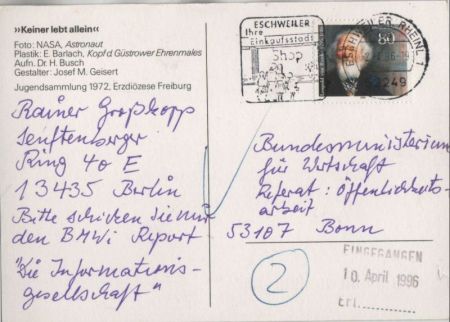 »Keiner lebt allein«
Foto: NASA, Astronaut
Plastik: E. Barlach, Kopf d Güstrower Ehrenmales
Aufn. Dr. H. Busch
Gestalter: Josef M. Geisert
Jugendsammlung 1972, Erzdiözese Freiburg
Rainer Großkopp
Senftenberger
Ring 40 E
13435 Berlin
Bitte schicken Sie mir
den BMWi Report
"Die Informations-
gesellschaft"
ESCHWEILER
Ihre
Einkaufsstadt
Shop
80
ESCHWEILER, RHEINL
96
249
Bundesministerium
für Wirtschaft
Referat: Öffentlichkeits-
arbeit
53107 Bonn
2
EINGEGANGEN
10. April 1996
Erl.